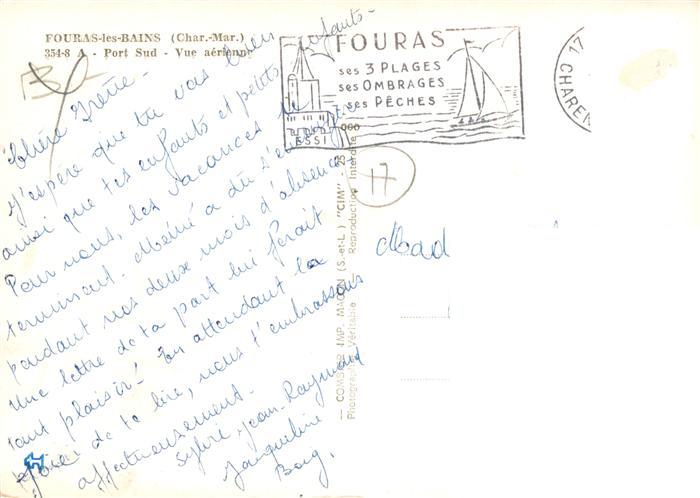 FOURAS-les-BAINS (Char.-Mar.)
354-8 A - Port Sud - Vue aérienne
FOURAS
ses 3 PLAGES
ses OMBRAGES
ses PÊCHES
17 CHAREN
17
Chère Irène -
J'espère que tu vas bien
ainsi que tes enfants et petits enfants -
Pour nous, les vacances se
terminent. Mémé a dû s'ennuyer
pendant nos deux mois d'absence.
Une lettre de ta part lui ferait
tant plaisir! En attendant la
joie de te lire, nous t'embrassons
affectueusement.
Sylvie, Jean-Raymond
Jacqueline
Mad
— COMBIER IMP. MACON (S.-et-L.) "CIM"
Photographie Véritable Reproduction Interdite